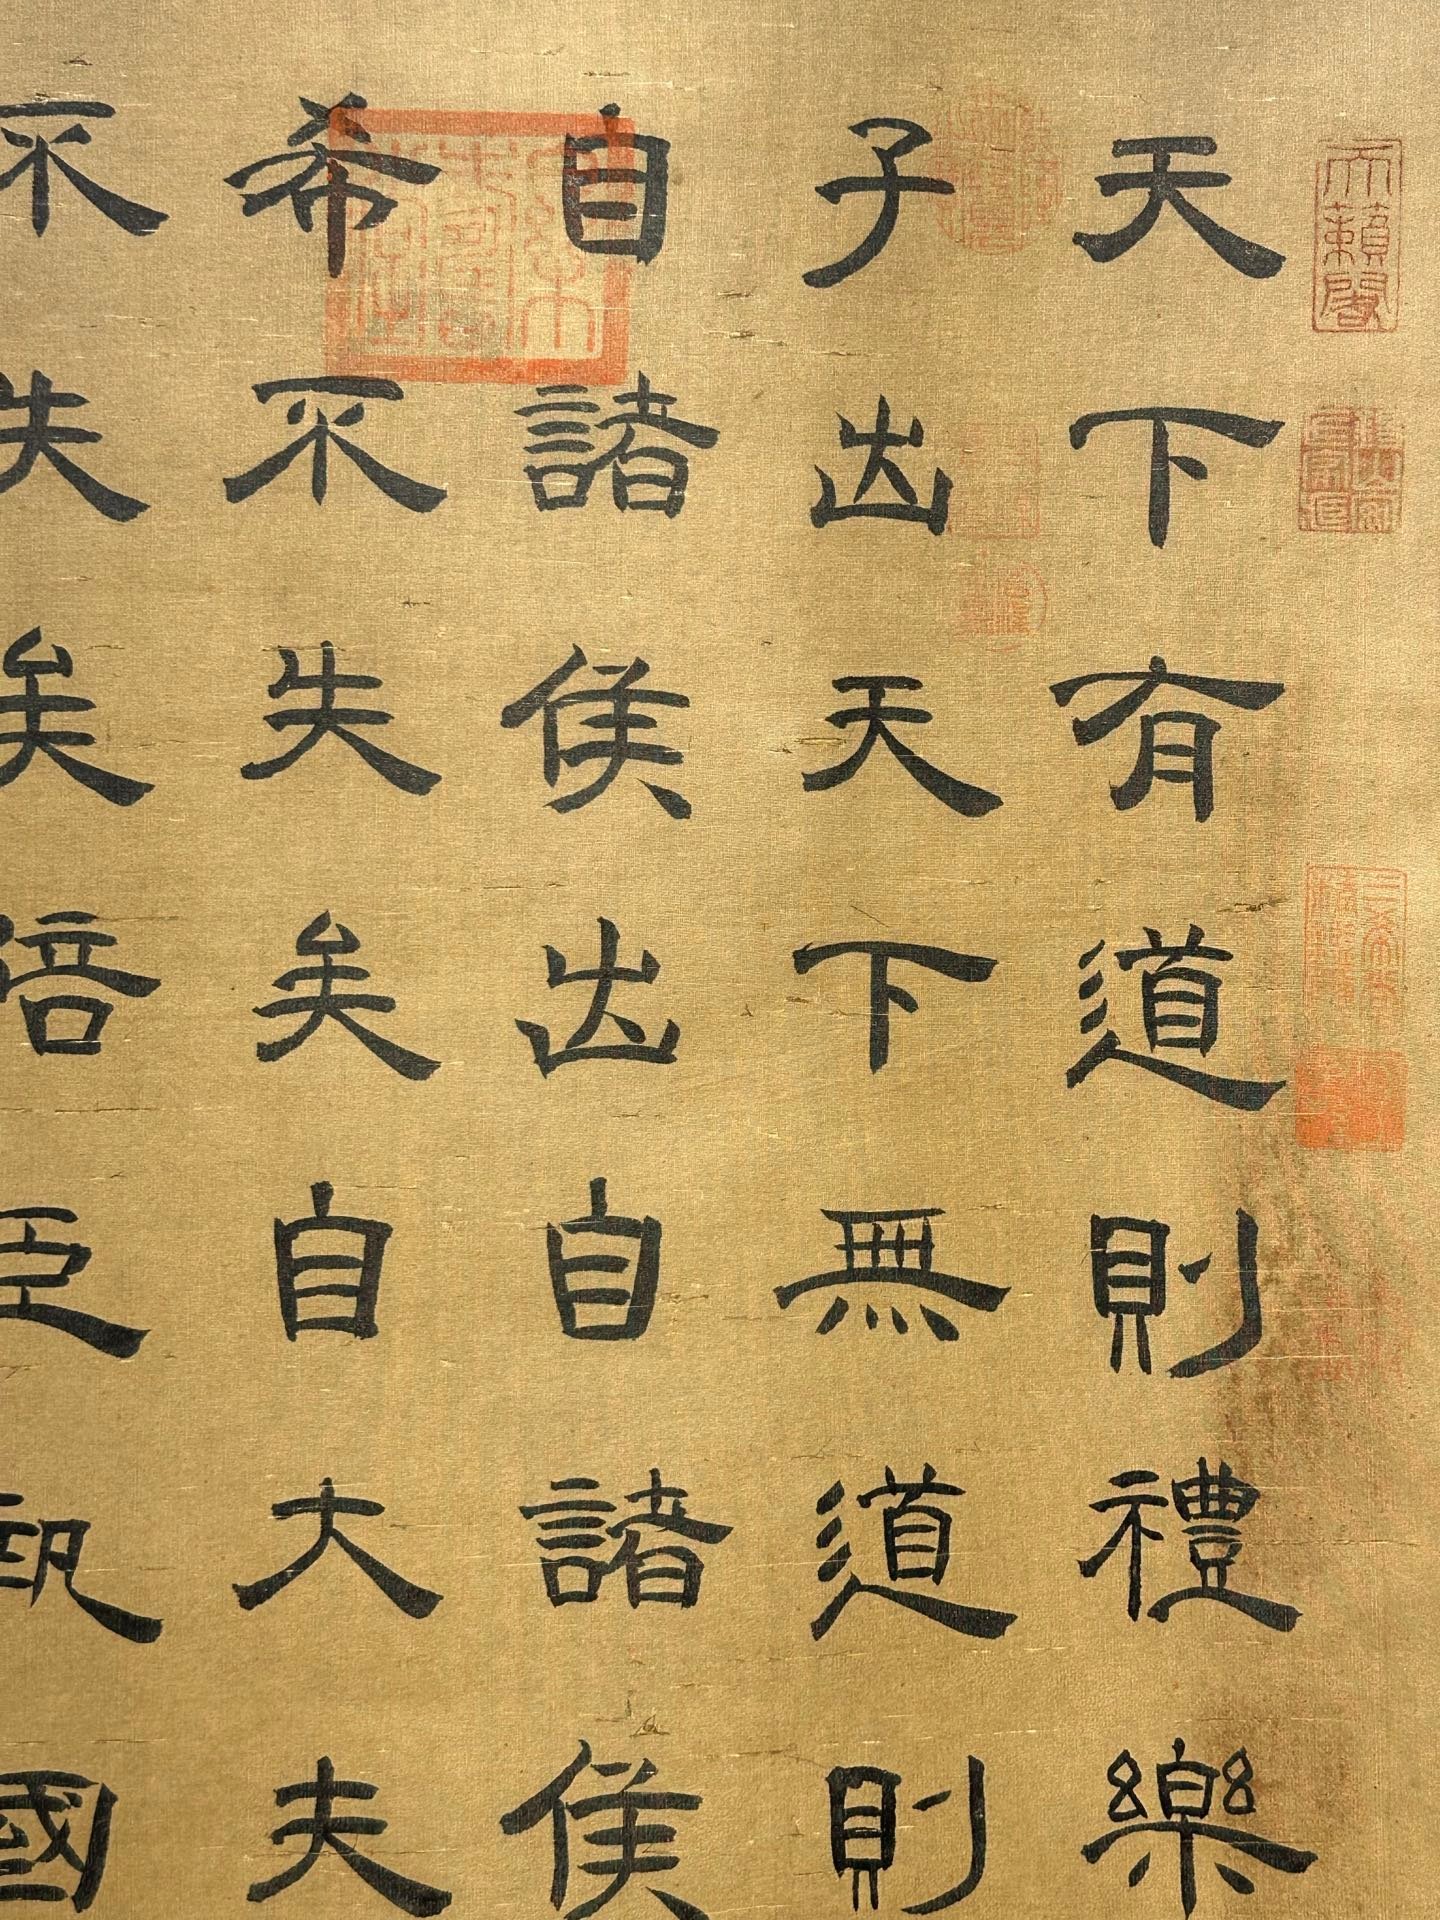 天下有道則禮樂
子出天下無道則
自諸侯出自諸侯
希不失矣自大夫
不失矣陪臣執國
天籟閣